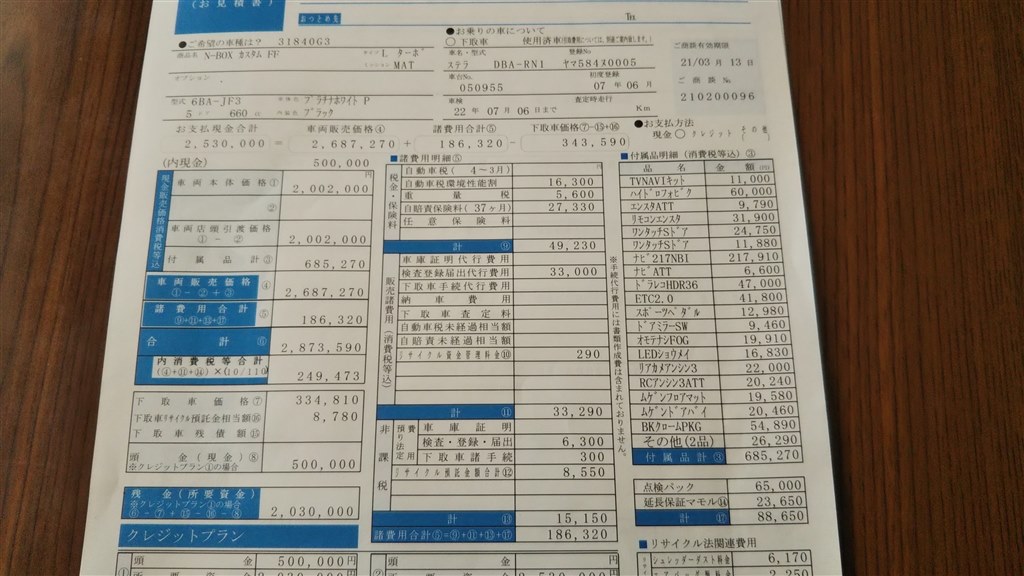 (お見積書)
おつとめ先 T℡
●ご希望の車種は? 31840G3
商品名 N-BOX カスタム FF タイプ L ターボ
ミッション MAT
オプション
型式 6BA-JF3 車体色 プラチナホワイト P
5ドア 660cc 内装色 ブラック
●お乗りの車について
○下取車 使用済車
車名・型式 登録No
ステラ DBA-RN1 ヤマ584X0005
車台No. 初度登録
050955 07年 06月
車検 査定時走行
22年 07月 06日まで Km
ご商談有効期限
21/03月 13日
ご商談 №
210200096
●お支払方法
現金○ クレジット その他
お支払現金合計 車両販売価格④ 諸費用合計⑤ 下取車価格⑦-⑮+⑯
2,530,000 = 2,687,270 + 186,320 - 343,590
(内現金) 500,000
現金販売価格消費税等込
車両本体価格① 2,002,000円
②
車両店頭引渡価格 ①-② 2,002,000
付属品計③ 685,270
車両販売価格 ①-②+③ ④ 2,687,270
諸費用合計 ⑨+⑪+⑬+⑰ ⑤ 186,320
合計 ⑥ 2,873,590
内消費税等合計 (④+⑪+⑭)×(10/110) 249,473
下取車価格⑦ 334,810
下取車リサイクル預託金相当額⑯ 8,780
下取車残債額⑮
頭金(現金)⑧ ※クレジットプラン①の場合 500,000
残金(所要資金) ※クレジットプラン①の場合 2,030,000
クレジットプラン
頭金 500,000円
■諸費用明細⑤
税金・保険料
自動車税( 4~3月) 円
自動車税環境性能割 16,300
重量税 5,600
自賠責保険料(37ヶ月) 27,330
任意保険料
計 ⑨ 49,230
販売諸費用(消費税等込)
車庫証明代行費用
検査登録届出代行費用 33,000
下取車手続代行費用
納車費用
下取車査定料
自動車税未経過相当額
自賠責未経過相当額
リサイクル資金管理料金⑩ 290
計 ⑪ 33,290
非課税
預り法定費用
車庫証明
検査・登録・届出 6,300
下取車諸手続 300
リサイクル預託金額合計⑫ 8,550
計 ⑬ 15,150
諸費用合計(⑤=⑨+⑪+⑬+⑰) 186,320
頭金 円
※手続代行費用には書類作成費は含まれておりません。
■付属品明細(消費税等込)③
品名 金額(円)
TVNAVIキット 11,000
ハイドロフォビク 60,000
エンスタATT 9,790
リモコンエンスタ 31,900
ワンタッチSドア 24,750
ワンタッチSドア 11,880
ナビ217NBI 217,910
ナビATT 6,600
ドラレコHDR36 47,000
ETC2.0 41,800
スポーツペダル 12,980
ドアミラーSW 9,460
オモテナシFOG 19,910
LEDショウメイ 16,830
リアカメアンシン3 22,000
RCアンシン3ATT 20,240
ムゲンフロアマット 19,580
ムゲンドアバイ 20,460
BKクロームPKG 54,890
その他(2品) 26,290
付属品計③ 685,270
点検パック 65,000
延長保証マモル⑭ 23,650
計 ⑰ 88,650
■リサイクル法関連費用
シュレッダーダスト料金 6,170
2,250